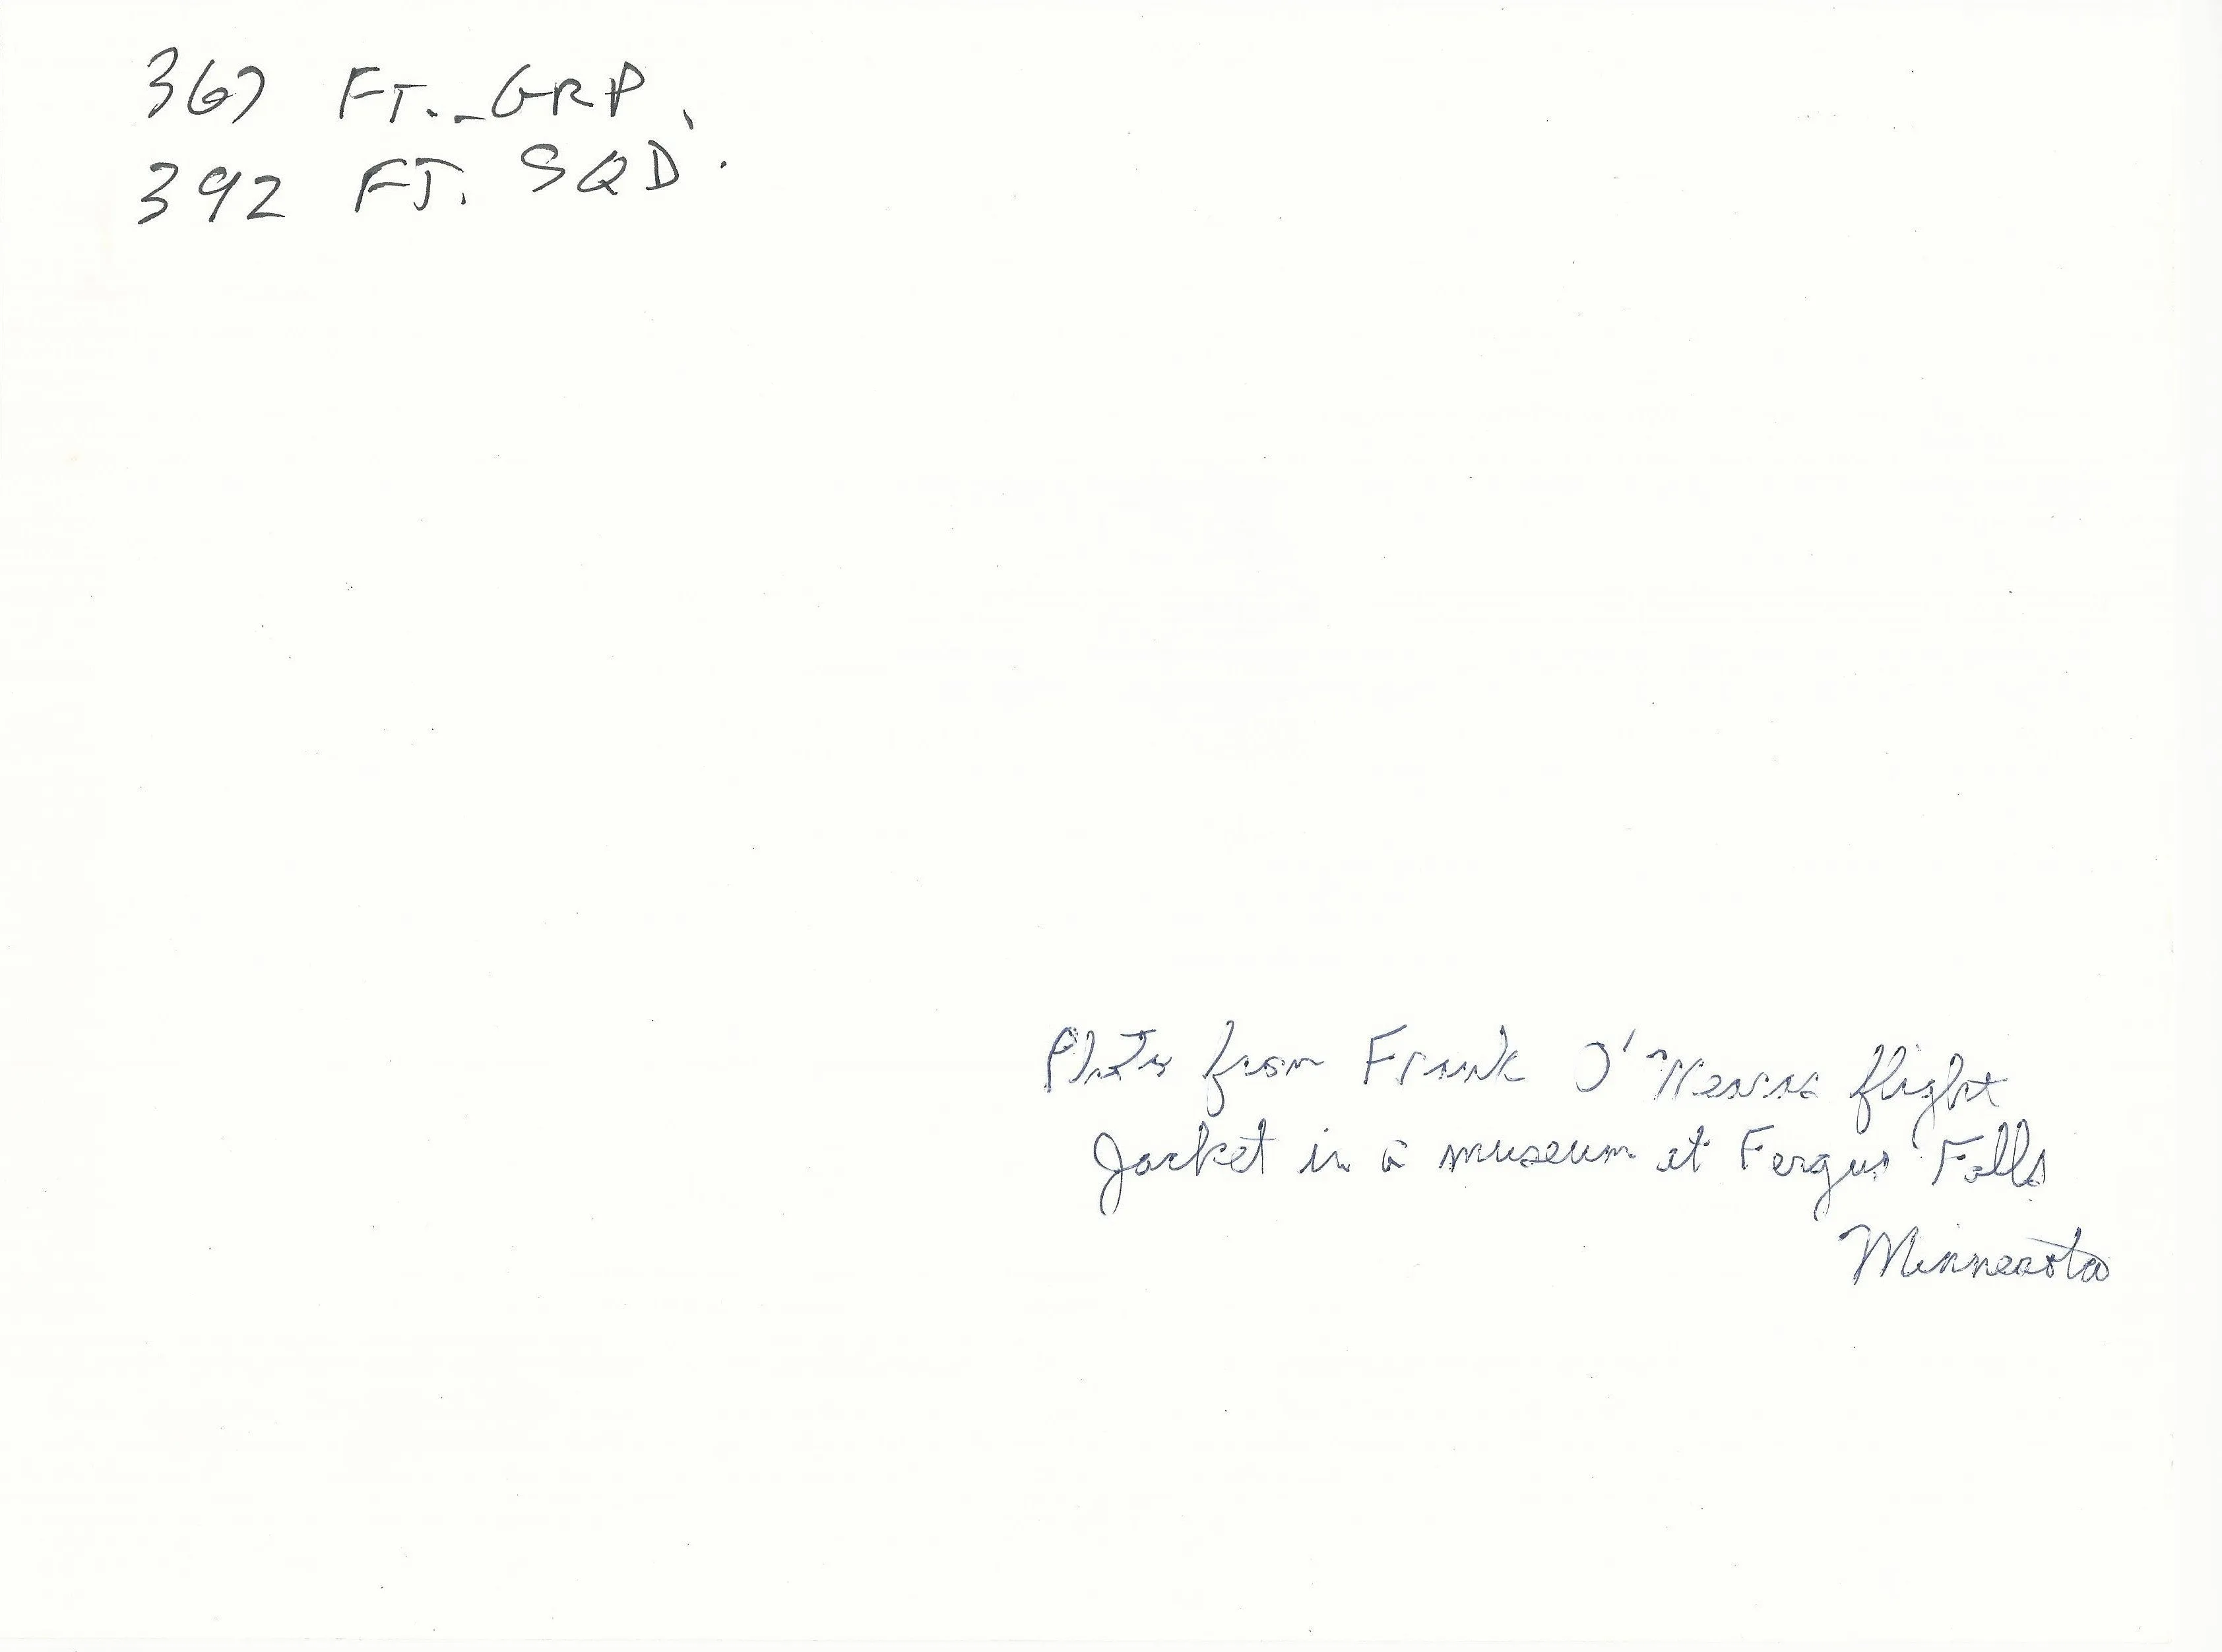 367 FT. GRP.
392 FT. SQD.
Photo from Frank flight
Jacket in a museum at Fergus Falls
Minnesota